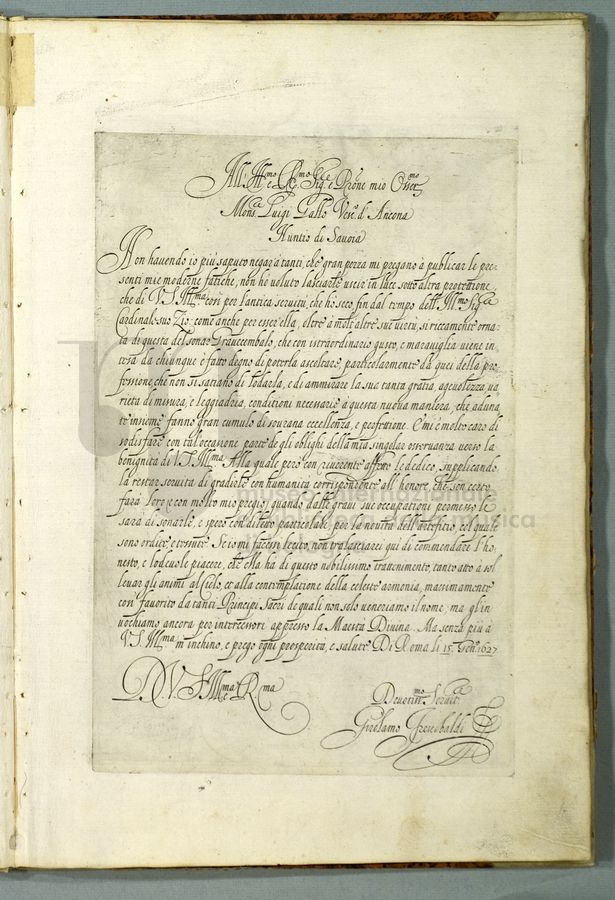 All' Ill.mo e R.mo Sig.re e Prone mio Osser.mo
Mons.r Luigi Gallo Vesc.o d'Ancona
Nuntio di Savoia
Non havendo io più saputo negar a tanti, che gran pezza mi pregano à publicar le pre=
senti mie moderne fatiche, non hò voluto lasciarle uscir in luce sotto altra protettione,
che di V.S. Ill.ma, così per l'antica servitù, che hò seco, fin dal tempo dell' Ill.mo Sig.r
Cardinale suo Zio: come anche per esser ella, oltre à molt'altre sue virtù, si riccamente orna=
ta di questa del sonar Gravecembalo, che con istraordinario gusto, e maraviglia viene in=
tesa da chiunque è fatto degno di poterla ascoltare, particolarmente da quei della pro=
fessione, che non si satiano di lodarla, e di ammirare la sua tanta gratia, agevolezza, va
rietà di misura, e leggiadria, conditioni necessarie à questa nuova maniera, che aduna
te insieme fanno gran cumulo di sourana eccellenza, e perfettione. E mi è molto caro di
sodisfare con tal occasione parte degli oblighi della mia singolar osservanza verso la
benignità di V.S. Ill.ma Alla quale però con riverente affetto le dedico, supplicando
la restar servita di gradirle con humanità corrispondente all'honore, che son certo
farà loro (e con molto mio pregio) quando dalle gravi sue occupationi permesso le
sarà di sonarle, e spero con diletto particolare per la novità dell'artefitio, col quale
sono ordite, e tessute. Se io mi facessi lecito, non tralasciarei qui di commendare l'ho
nesto, e lodevole piacere, che ella hà di questo nobilissimo trattenimento, tanto atto à sol
levar gli animi al Cielo, et alla contemplatione della celeste armonia, massimamente
così favorito da tanti Principi Sacri de quali non solo veneriamo il nome, ma gl'in
vochiamo ancora per intercessori appresso la Maestà Divina. Ma senza più à
V.S. Ill.ma m'inchino, e prego ogni prosperità, e salute. Di Roma li 15. Gen.o 1627
D. V. S. Ill.ma e R.ma
Devotiss.mo Servit.re
Girolamo Frescobaldi
museo internazionale